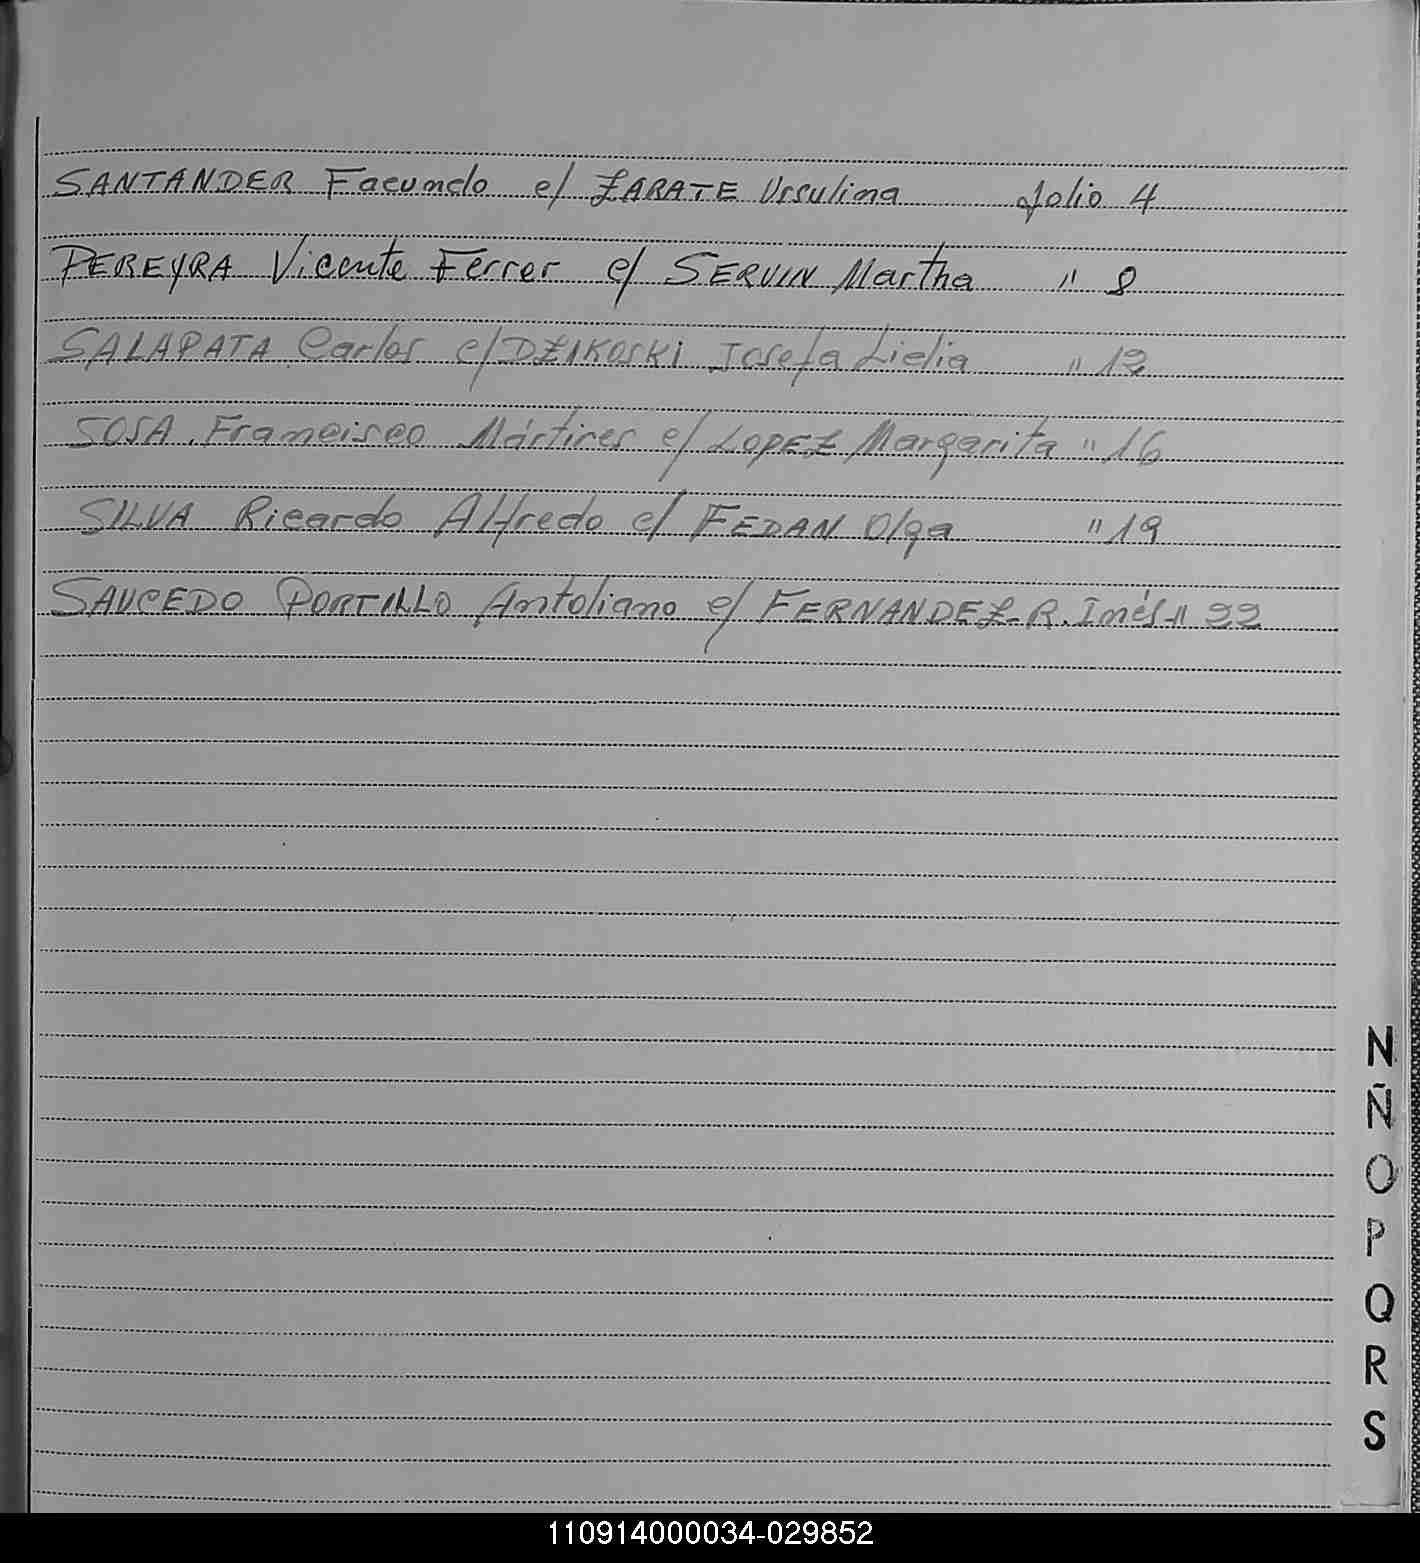 SANTANDER Facundo c/ ZARATE Ursulina folio 4
PEREYRA Vicente Ferrer c/ SERVIN Martha " 8
SALAPATA Carlos c/ DZIKOSKI Josefa Lidia " 12
SOSA Francisco Mártires c/ LOPEZ Margarita " 16
SILVA Ricardo Alfredo c/ FEDAN Olga " 19
SAUCEDO PORTILLO Antoliano c/ FERNANDEZ R. Inés " 22
N
Ñ
O
P
Q
R
S
110914000034-029852